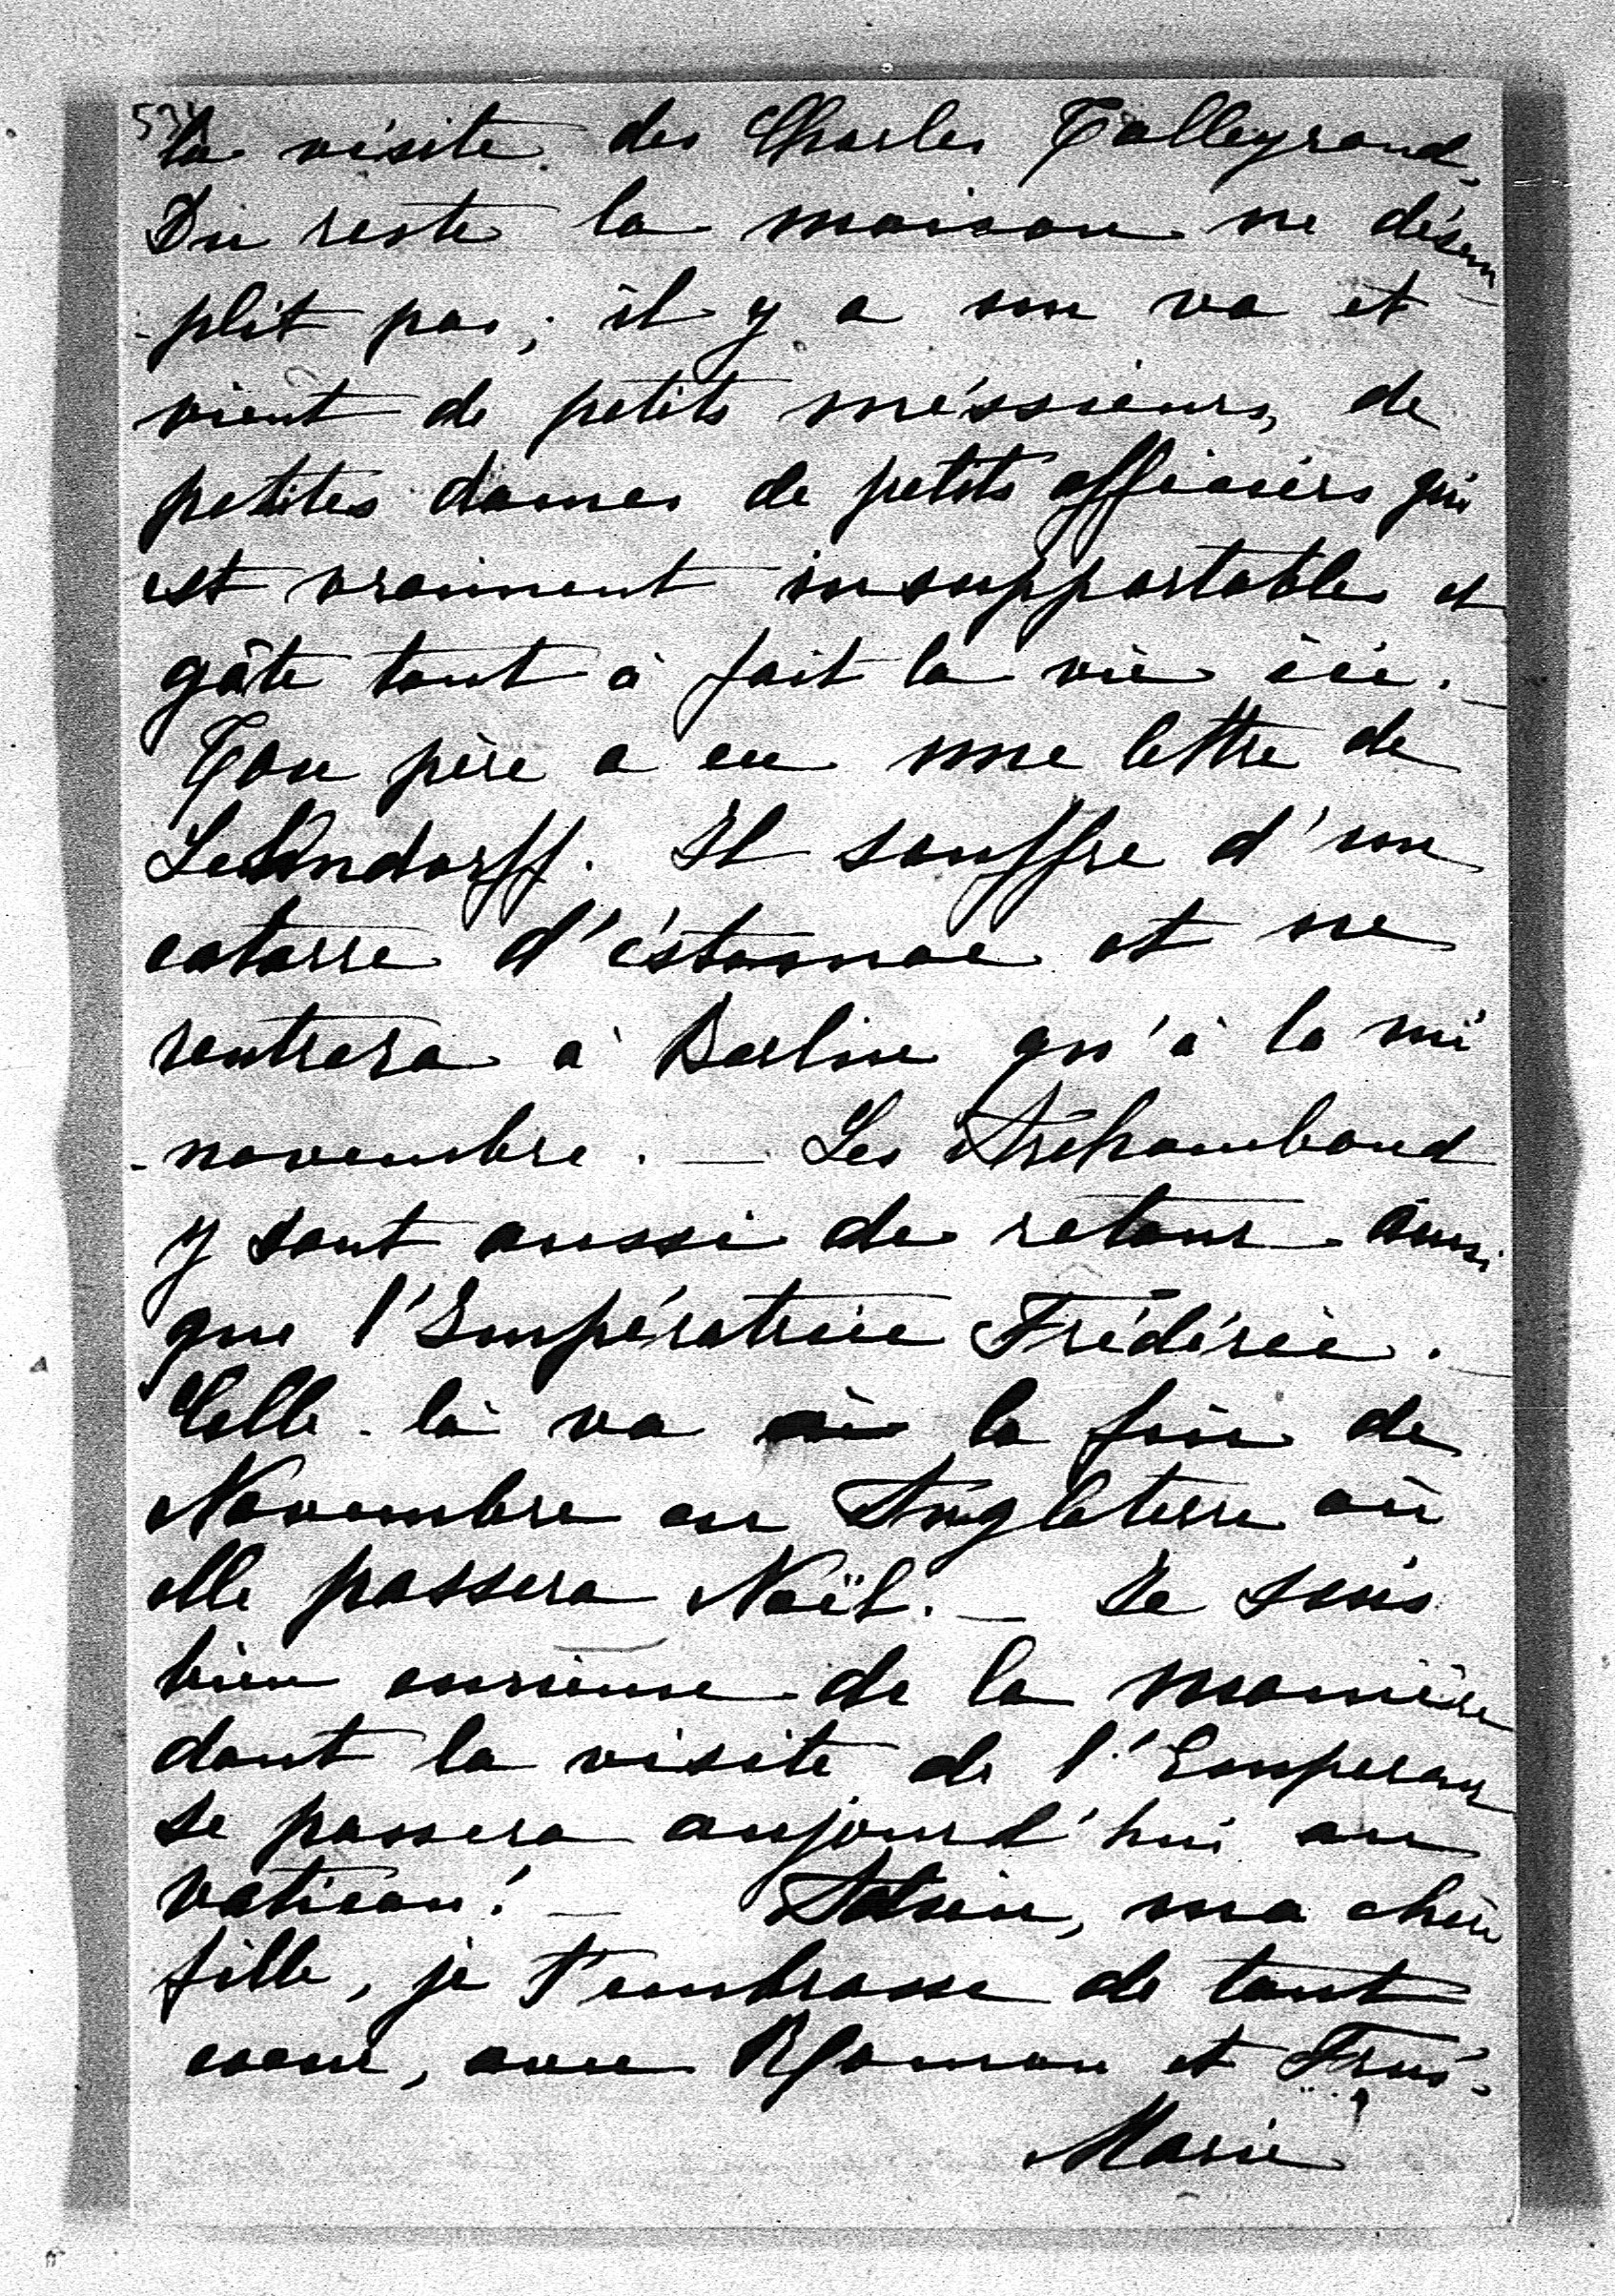 la visite des Charles Talleyrand,
Du reste la maison ne désem
-plit pas; il y a un va et
vient de petits méssieurs, de
petites dames de petits officiérs qui
est vraiment insupportable et
gâte tout à fait la vie ici.
Ton père a eu une lettre de
Lehndorff. Il souffre d'un
catarre d'éstomac et ne
rentrera à Berlin qu'à la mi
-novembre. — Les
y sont aussi de retour ainsi
que l'Impératrice Frédéric.
Celle-là va à la fin de
Novembre en Angleterre où
elle passera Noël. — Je suis
bien curieuse de la manière
dont la visite de l'Empereur
se passera aujourd'hui au
vatican! — Adieu, ma chère
fille, je t'embrasse de tout
coeur, avec et
Marie